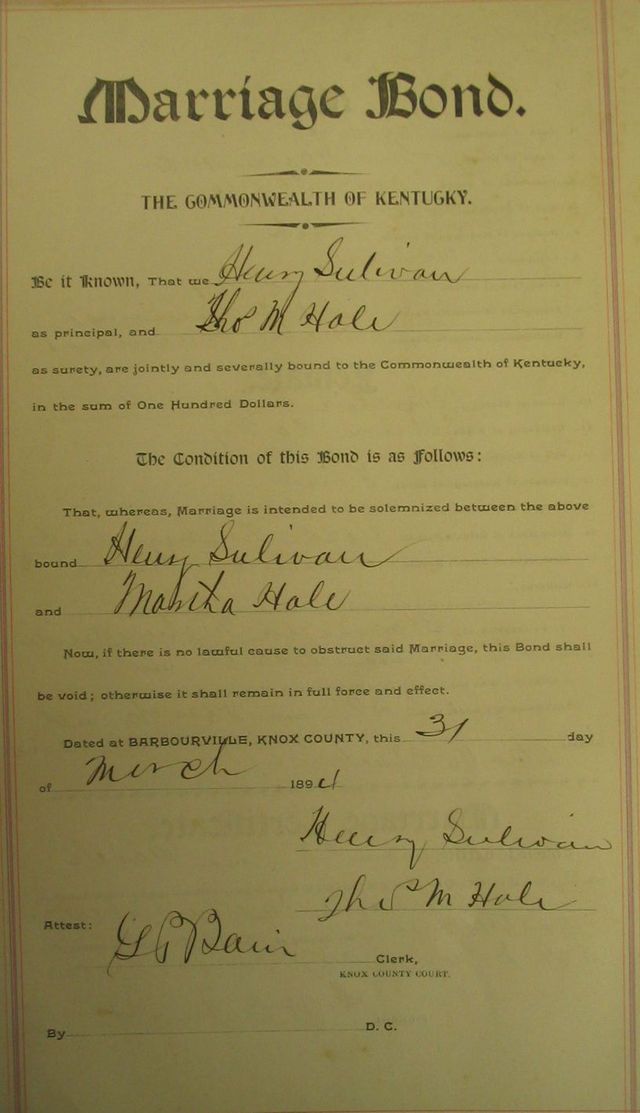 Marriage Bond.
THE COMMONWEALTH OF KENTUCKY.
Be it Known, That we Henry Sulivan
as principal, and Thos M Hale
as surety, are jointly and severally bound to the Commonwealth of Kentucky,
in the sum of One Hundred Dollars.
The Condition of this Bond is as Follows:
That, whereas, Marriage is intended to be solemnized between the above
bound Henry Sulivan
and Martha Hale
Now, if there is no lawful cause to obstruct said Marriage, this Bond shall
be void; otherwise it shall remain in full force and effect.
Dated at BARBOURVILLE, KNOX COUNTY, this 31 day
of March 1894
Henry Sulivan
Thos M Hale
Attest:
Bain Clerk,
KNOX COUNTY COURT.
By D. C.